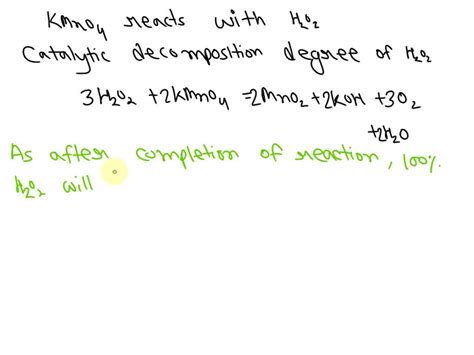 KMnO4 reacts with H2O2
Catalytic decomposition degree of H2O2
3H2O2 + 2KMnO4 = 2MnO2 + 2KOH + 3O2
+ 2H2O
As after completion of reaction, 100%
H2O2 will